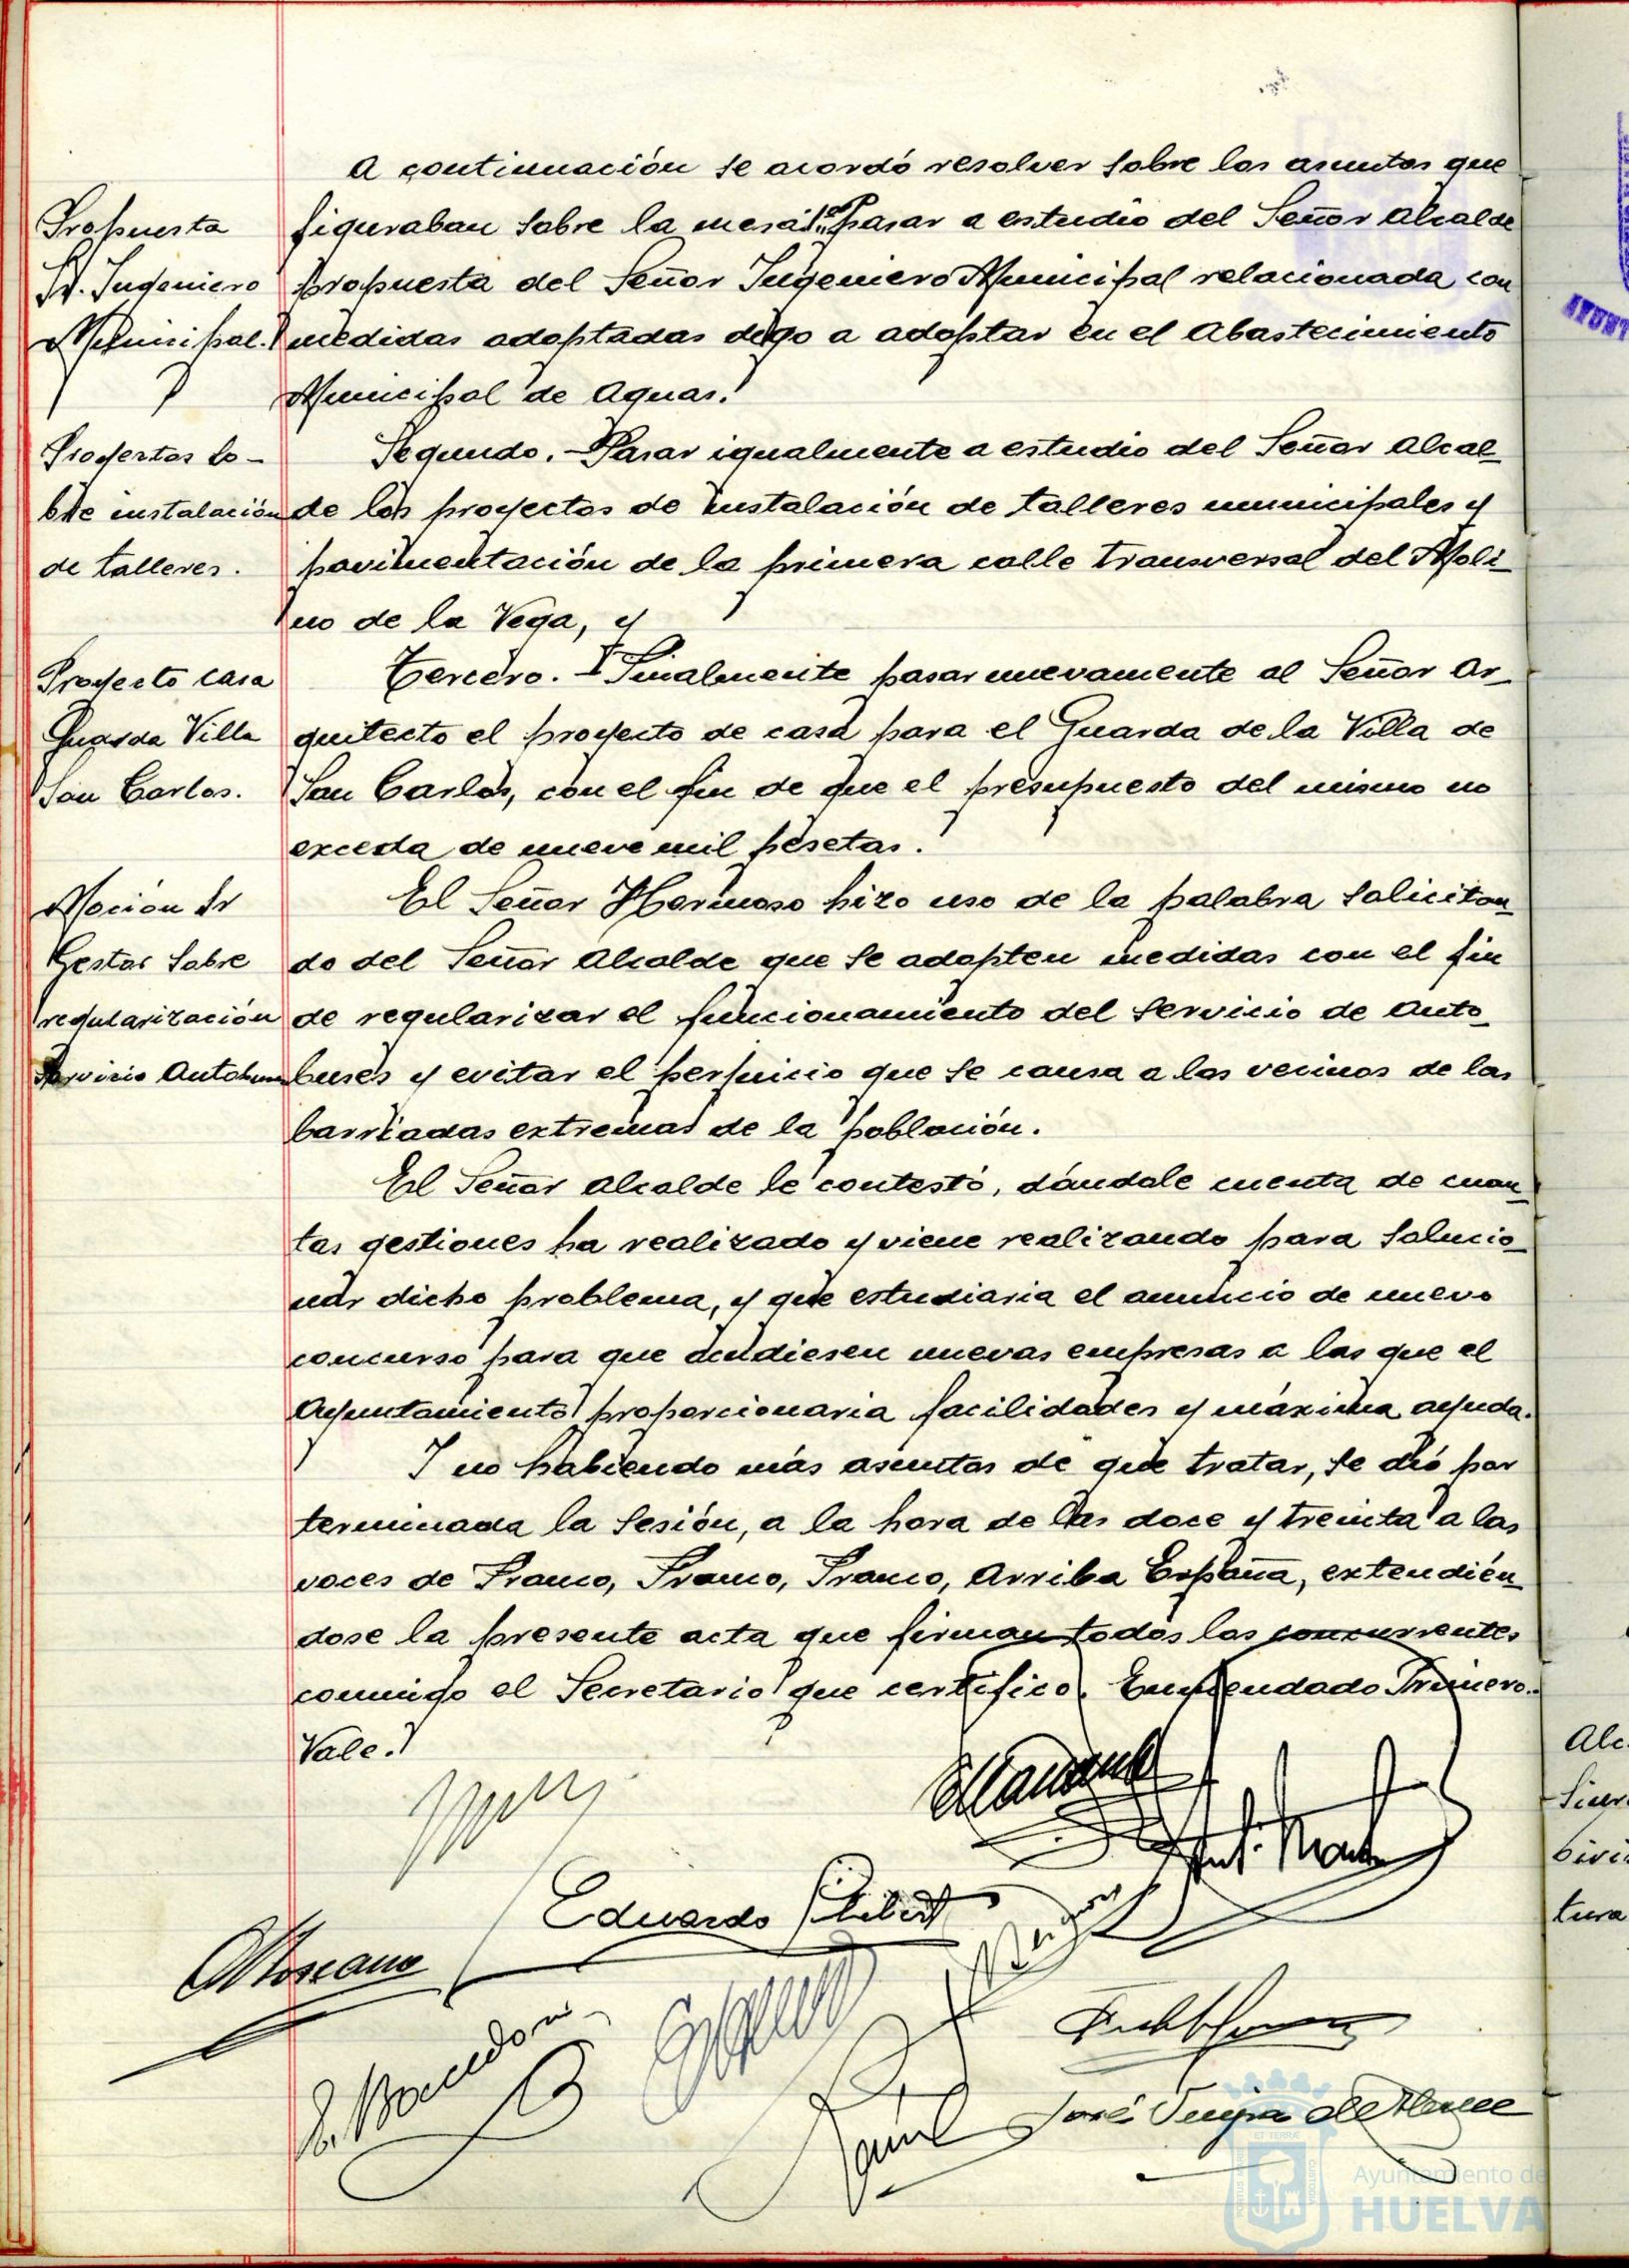 A continuación se acordó resolver sobre los asuntos que
Propuesta
Sr. Ingeniero
Municipal.
figuraban sobre la mesa: 1º Pasar a estudio del Señor Alcalde
propuesta del Señor Ingeniero Municipal relacionada con
medidas adoptadas digo a adoptar en el Abastecimiento
Municipal de Aguas.
Proyectos so-
bre instalación
de talleres.
Segundo.- Pasar igualmente a estudio del Señor Alcal-
de los proyectos de instalación de talleres municipales y
pavimentación de la primera calle transversal del Moli-
no de la Vega, y
Proyecto casa
Guarda Villa
San Carlos.
Tercero.- Finalmente pasar nuevamente al Señor Ar-
quitecto el proyecto de casa para el Guarda de la Villa de
San Carlos, con el fin de que el presupuesto del mismo no
exceda de nueve mil pesetas.
Moción Sr
Gestor sobre
regularización
Servicio Autobuses
El Señor Hermoso hizo uso de la palabra solicitan-
do del Señor Alcalde que se adopten medidas con el fin
de regularizar el funcionamiento del servicio de Auto-
buses y evitar el perjuicio que se causa a los vecinos de las
barriadas extremas de la población.
El Señor Alcalde le contestó, dándole cuenta de cuan-
tas gestiones ha realizado y viene realizando para solucio-
nar dicho problema, y que estudiaria el anuncio de nuevo
concurso para que acudiesen nuevas empresas a las que el
Ayuntamiento proporcionaria facilidades y máxima ayuda.
Y no habiendo más asuntos de que tratar, se dió por
terminada la sesión, a la hora de las doce y treinta a las
voces de Franco, Franco, Franco, Arriba España, extendién-
dose la presente acta que firman todos los concurrentes
conmigo el Secretario que certifico. Enmendado Primero.-
Vale.
Eduardo
José
Ayuntamiento de
HUELVA
Alc
tura